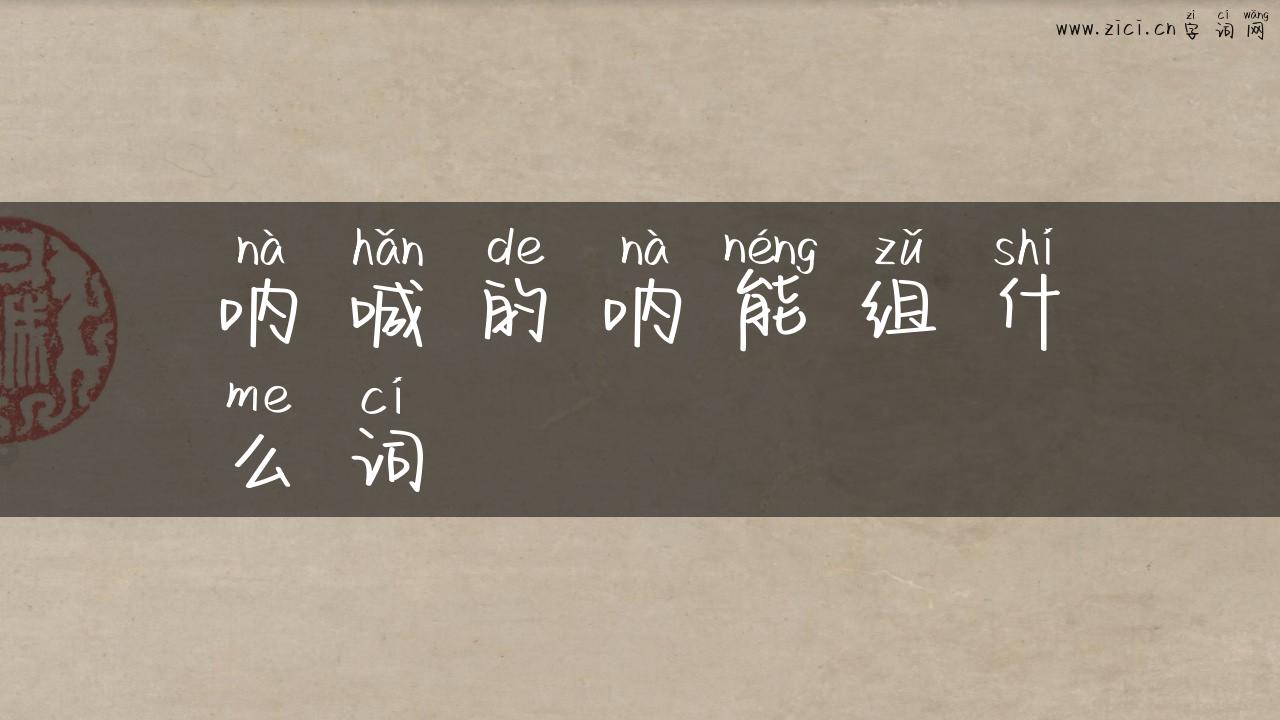 zì cí wǎng
www.zici.cn 字词网
nà hǎn de nà néng zǔ shí
呐喊的呐能组什
me cí
么词